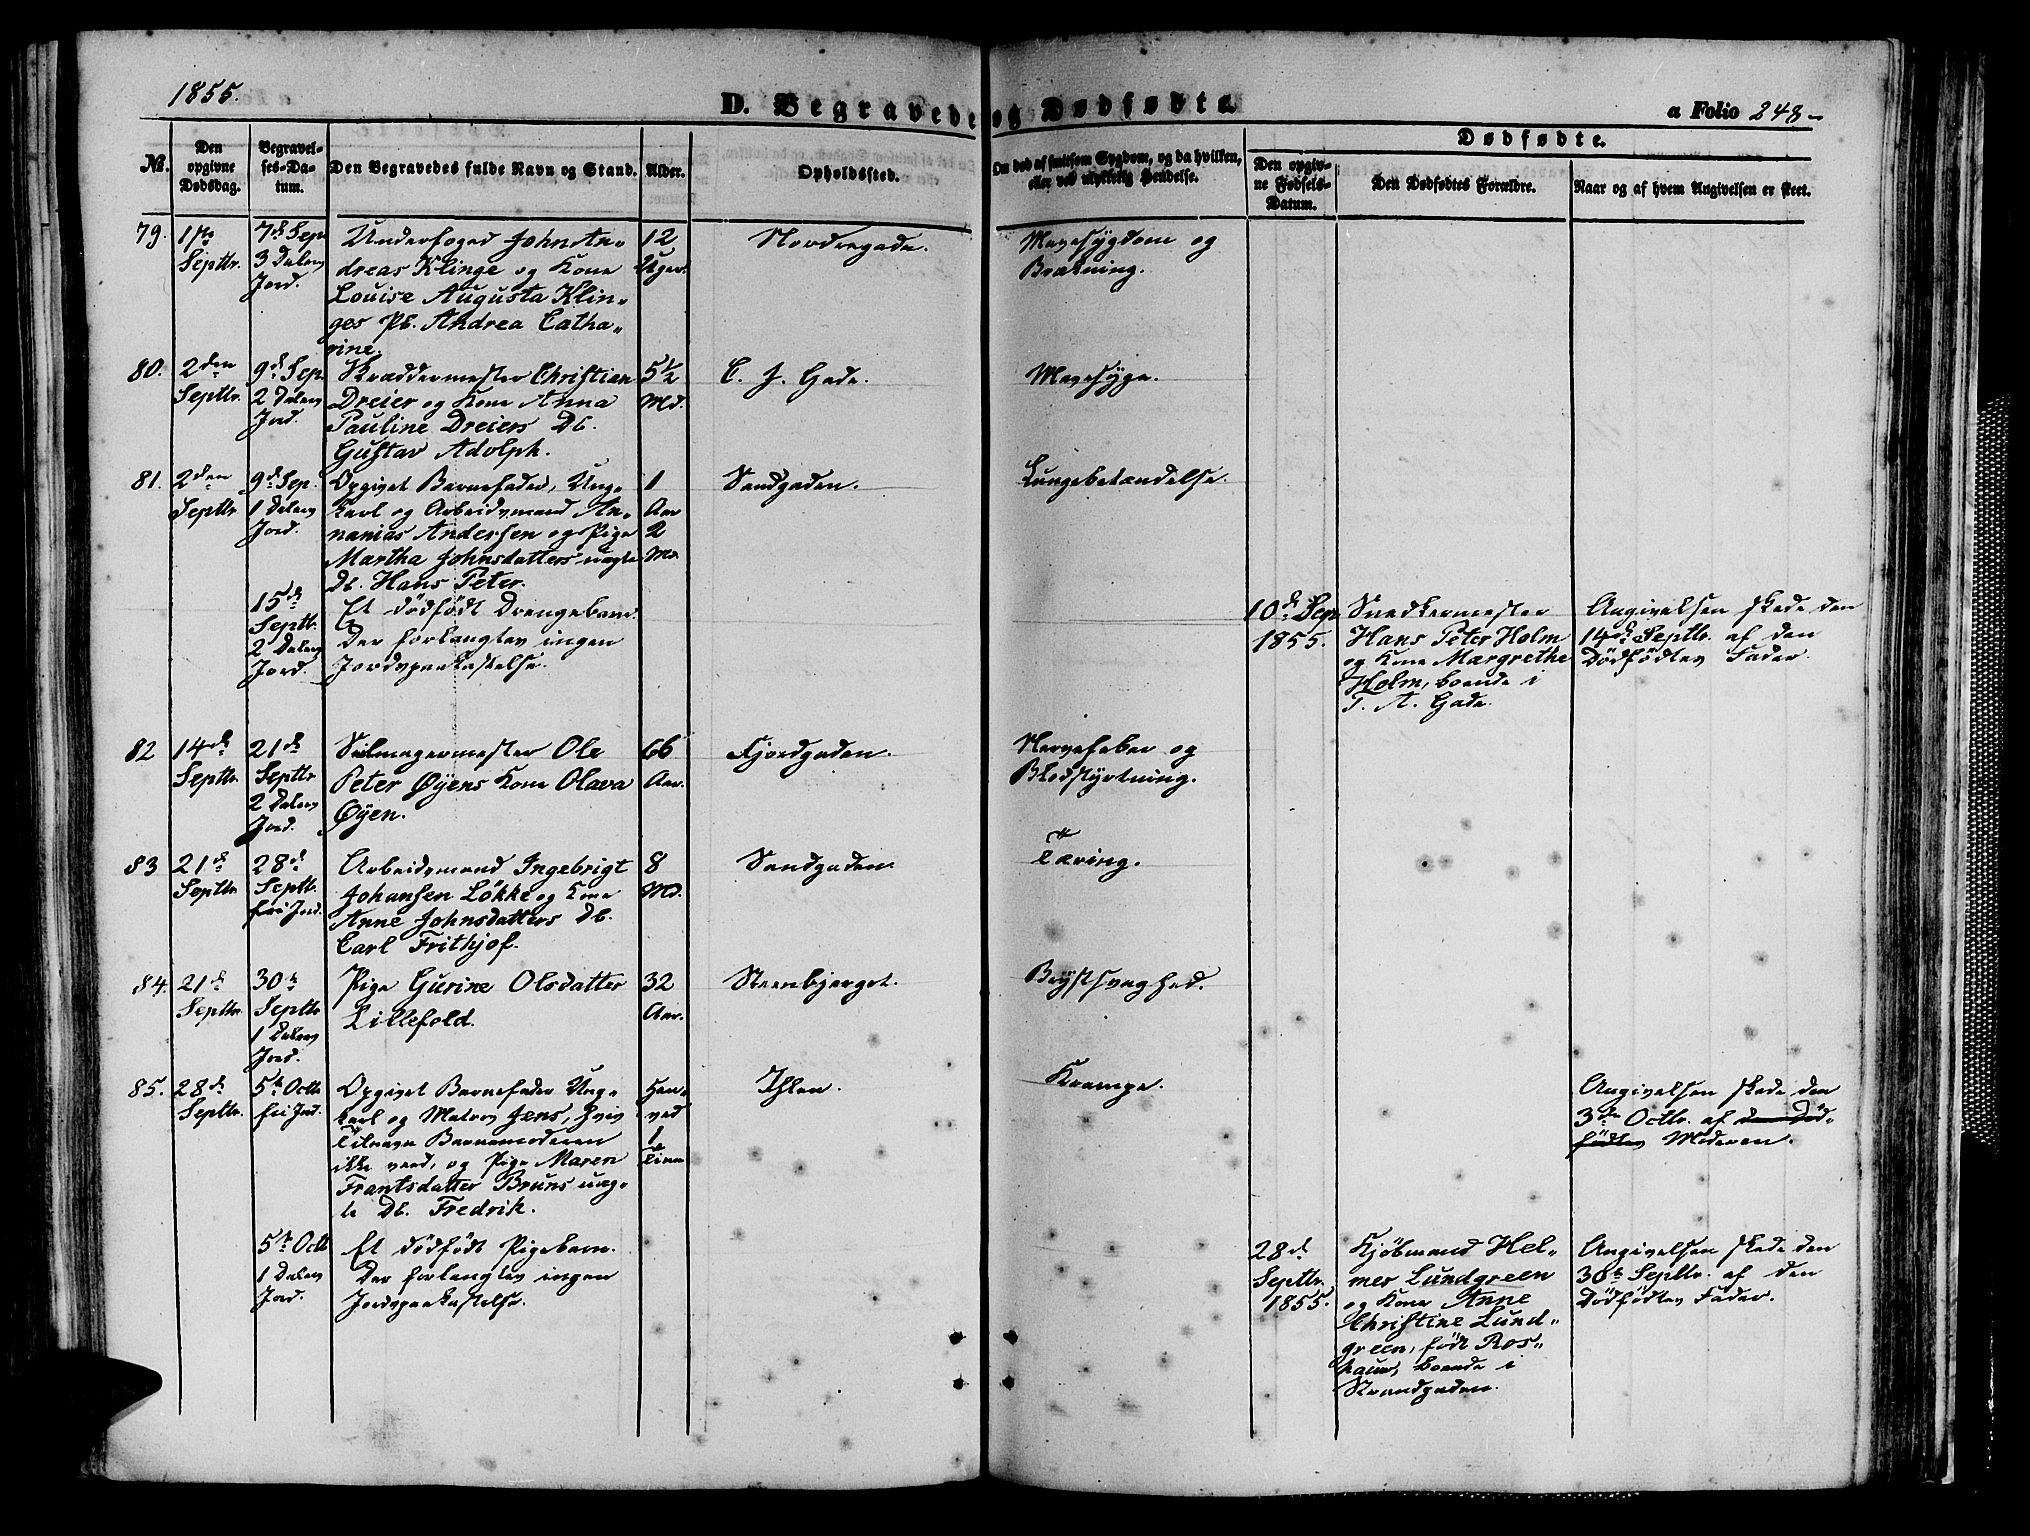 1855.
D. Begravede og Dødfødte.
a Folio 248.
Dødfødte.
No.
Den opgivne Dødsdag.
Begravelses-Datum.
Den Begravedes fulde Navn og Stand.
Alder.
Opholdssted.
Om død af smitsom Sygdom, og da hvilken, eller ved ulykkelig Hendelse.
Den opgivne Fødsels-Datum.
Den Dødfødtes Forældre.
Naar og af hvem Angivelsen er skeet.
79.
Septbr.
7de Sep.
3 Dalers
Jord.
Underfoged John An-
dreas Klinge og Kone
Louise Augusta Klin-
ges Pb. Andrea Catha-
rine.
12
Uger.
Nordregade.
Mavesygdom og
Brækning.
80.
2den
Septbr.
9de Sep.
2 Dalers
Jord.
Skræddermester Christian
Dreier og Kone Anna
Pauline Dreiers Db.
Gustav Adolph.
5 1/2
Md.
C. J. Gade.
Mavesyge.
81.
2den
Septbr.
9de Sep.
1 Dalers
Jord.
Opgivet Barnefader, Ung-
karl og Arbeidsmand An-
nanias Andersen og Pige
Martha Johnsdatters uægte
Db. Hans Peter.
1
Aar
2
Md.
Sandgaden.
Lungebetændelse.
15de
Septbr.
2 Dalers
Jord.
Et dödfödt Drengebarn.
Der forlangtes ingen
Jordspaakastelse.
10de Sep.
1855.
Snedkermester
Hans Peter Holm
og Kone Margrethe
Holm, boende i
T. A. Gade.
Angivelsen skede den
14de Septbr. af den
Dödfödtes Fader.
82
14de
Septbr.
21de
Septbr.
2 Dalers
Jord.
Salmagermester Ole
Peter Øyens Kone Olava
Øyen.
66
Aar.
Fjordgaden.
Nervefeber og
Blodstyrtning.
83
21de
Septbr.
28de
Septbr.
fri Jord.
Arbeidsmand Ingebrigt
Johansen Løkke og Kone
Anne Johnsdatters Db.
Carl Frithjof.
8
Md.
Sandgaden.
Tæring.
84.
21de
Septbr.
30te
Septbr.
1 Dalers
Jord.
Pige Gurine Olsdatter
Lillefold.
32
Aar.
Steenbjerget.
Brystsvaghed.
85.
28de
Septbr.
5te Octbr.
fri Jord.
Opgivet Barnefader Ung-
karl og Matros Jens, hvis
Tilnavn Barnemoderen
ikke veed, og Pige Maren
Frantsdatter Bruns uæg-
te Db. Fredrik.
Hen-
ved
1
Time
Ihlen.
Krampe.
Angivelsen skede den
3die Octbr. af den Död-
födtes Moderen.
5te Octb.
1 Dalers
Jord.
Et dödfödt Pigebarn.
Der forlangtes ingen
Jordspaakastelse.
28de
Septbr.
1855.
Kjøbmand Hel-
mer Lundgreen
og Kone Anne
Christine Lund-
green, født Ros-
haur, boende i
Strandgaden.
Angivelsen skede den
30te Septbr. af den
Dödfödtes Fader.